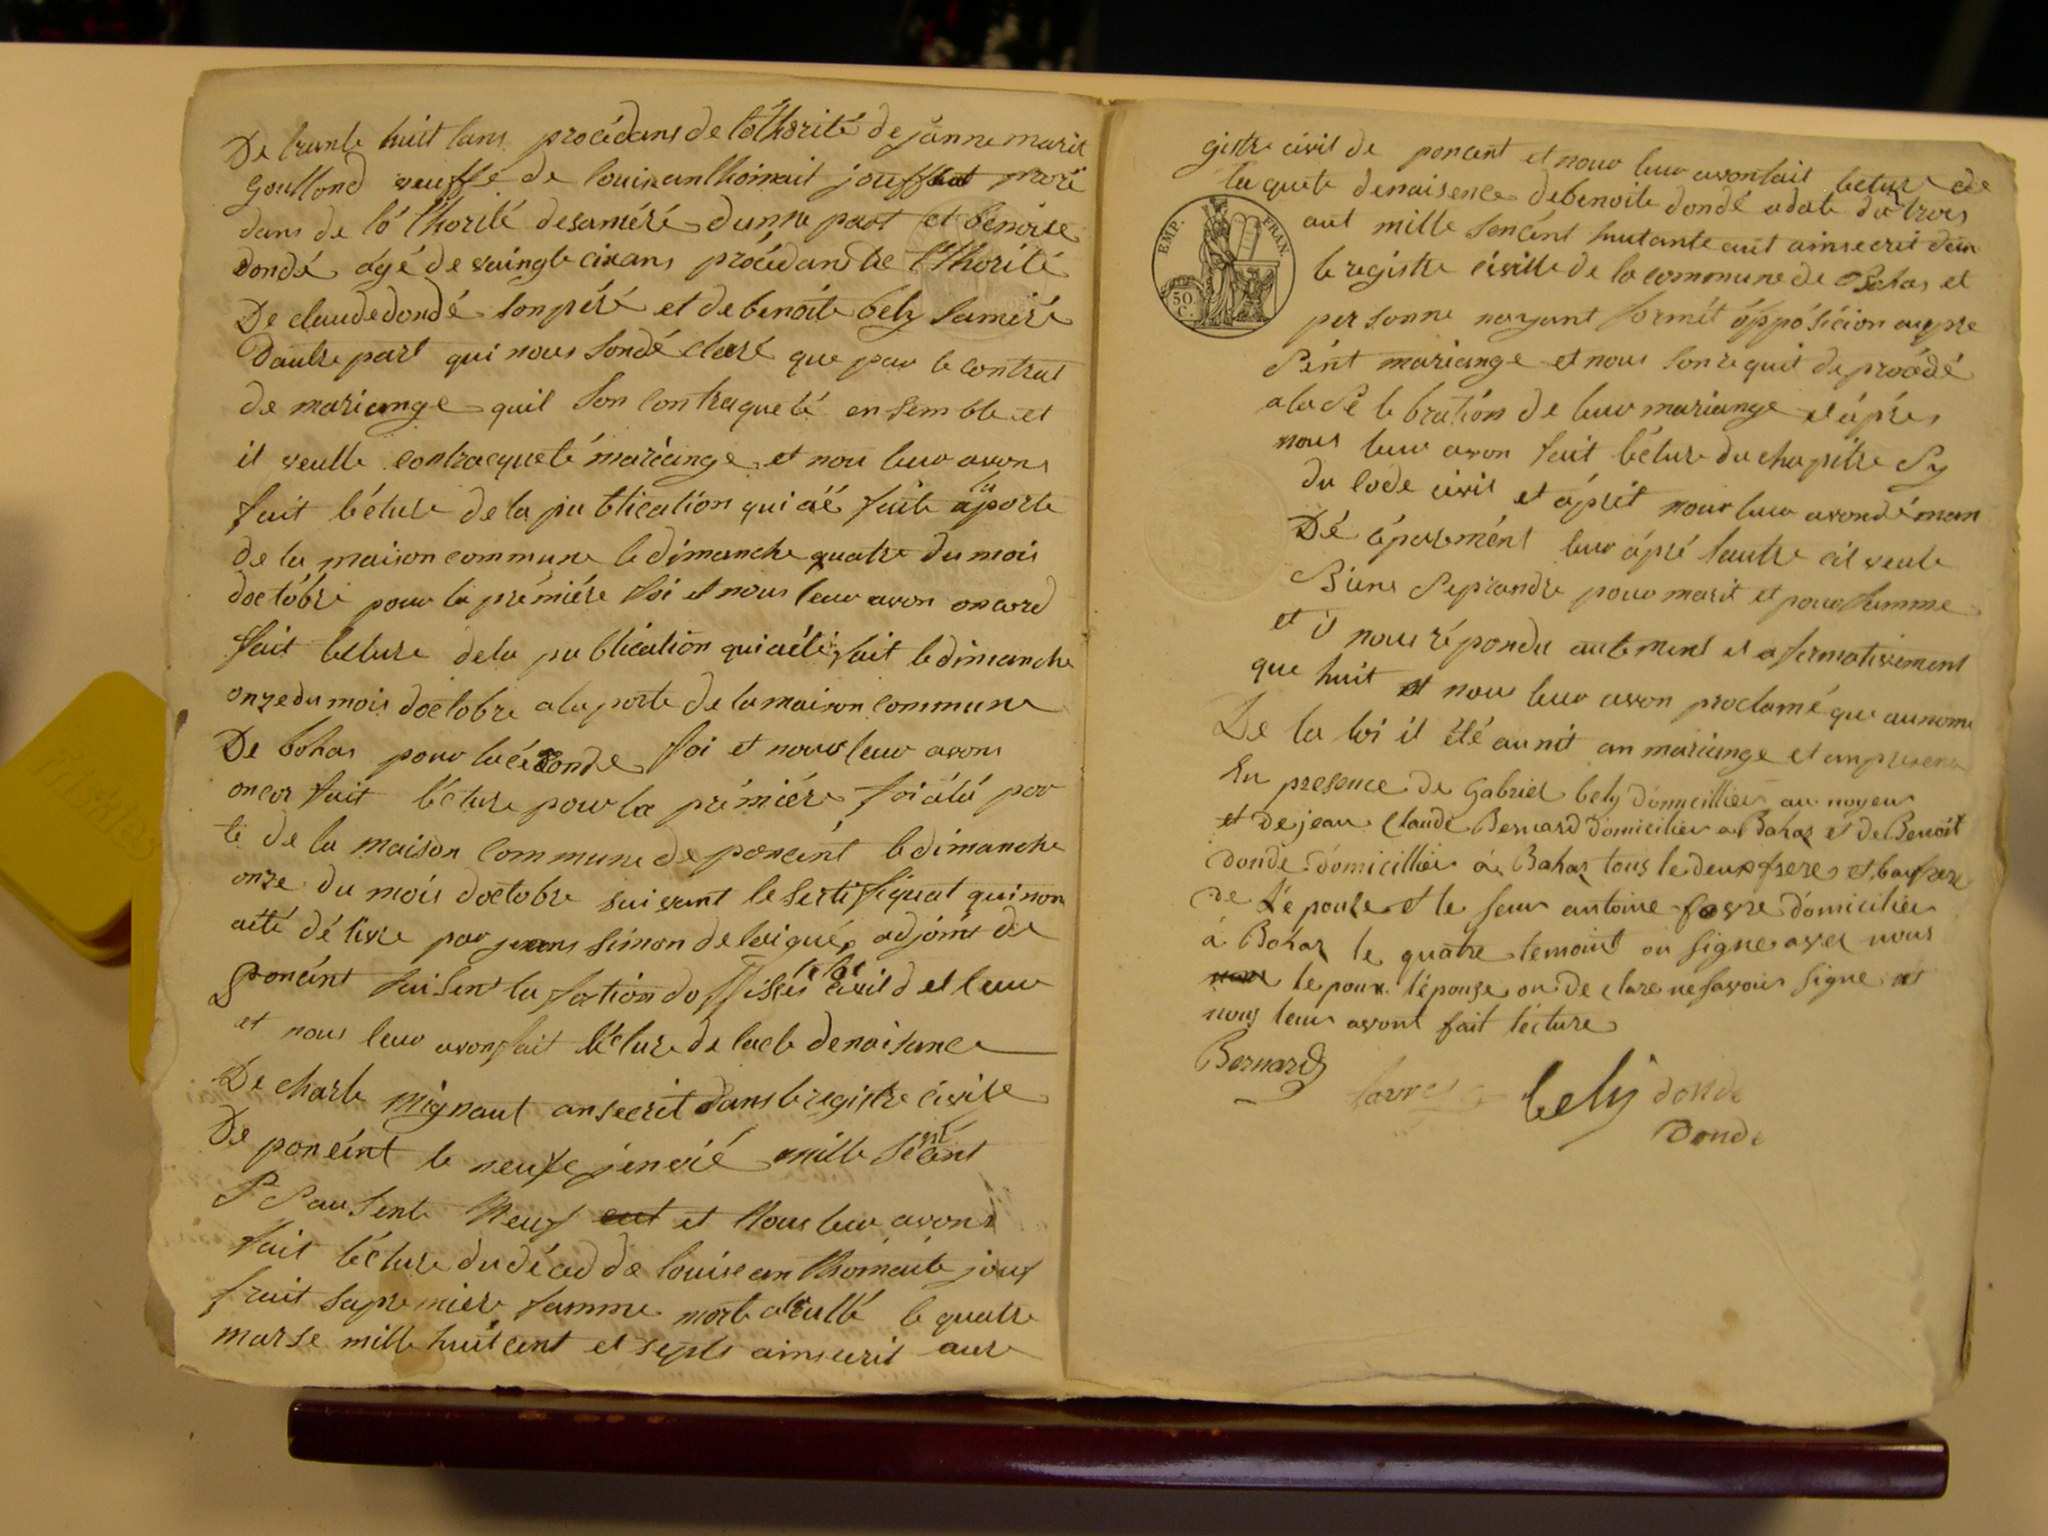 De trante huit tans procédans de lôthorité de jánne marie
goullond veuffe de louiseanthoinait jouffrat procé
dans de lô thorité desaméré dunne part et benoise
dondé agé de vaingte cinans procédans de l'thorité
De claude dondé son péré et de benoite bely samére
Dautre part qui nous sondé claré que par le contrat
de mariange quil son contraqueté ensemble et
il veulle contracqueté mariange et nou leur avons
fait lécture de la publication qui aé faite a la porte
de la maison commune le dimanche quatre du mois
doctóbre pour la prémiére foi et nous leur avon oncord
fait lecture dela publication qui aété fait le dimanche
onze du mois doctobre a la porte de la maison commune
De bohas pour la séconde foi et nous leur avons
oncor fait lécture pour la prémiére foi á lá por
te de la maison commune de poncint le dimanche
onze du mois doctobre suivant le sertifiquat qui non
aété délivré par jeans simon delaigué adjóint de
poncint faisent la fontion doffissié de létat civil d elleur
et nous leur avons fait lécture de lacte denaisance
De charle mignaut anscrit dans le registre civile
De poncint le neufe jenvié mille sét cent
Sausente neuf et nous leur avons
fait lécture du décad de louise anthoinaite jouf
frait sapremiere famme morte a le quatre
marse mille huit cent et septs ainscrit aure
gistre civil de poncent et nour leur avon fait lecture de
laquete denaisence debenoite dondé adate du trois
aut mille sencént huitante cuit ainsecrit dan
EMP. FRAN.
50 C.
le registre civille de la commune de Bohas et
personne nayant formét óppósicion au pre
sént mariange et nous son requit de procédé
a la sé le bration de leur mariange et áprés
nous leur avon fait lécture du chapitre sy
du code civil et áprét nour leur avon déman
Dé séparemént leur ápré lautre cil veule
Biens se prandre pour marit et pour famme
et il nous répondu autement et afermativement
que huit et nous leur avon proclamé que aunom
De la loi il été aunit an mariange et an presence
En presence de Gabriel bely domicillier au noyeu
et de jean Claude Bernard domicilier a Bohas et de Benoit
donde domicillier á Bohas tous le deux freres et baufrere
de Lépouse et le seur antoine favre domicilier
á Bohas le quatre temoint on signe avec nous
le poux lépouse on declare ne savoir signe et
nous leur avont fait lécture
Bernard
favre bely donde
Donde